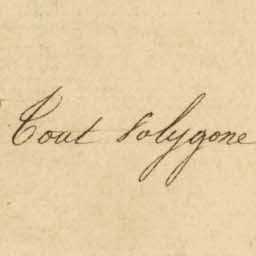 Tout Polygone